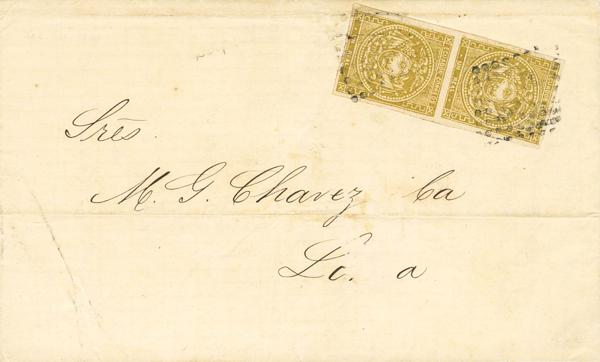 Srēs.
M. G. Chavez Ca
Lc. a